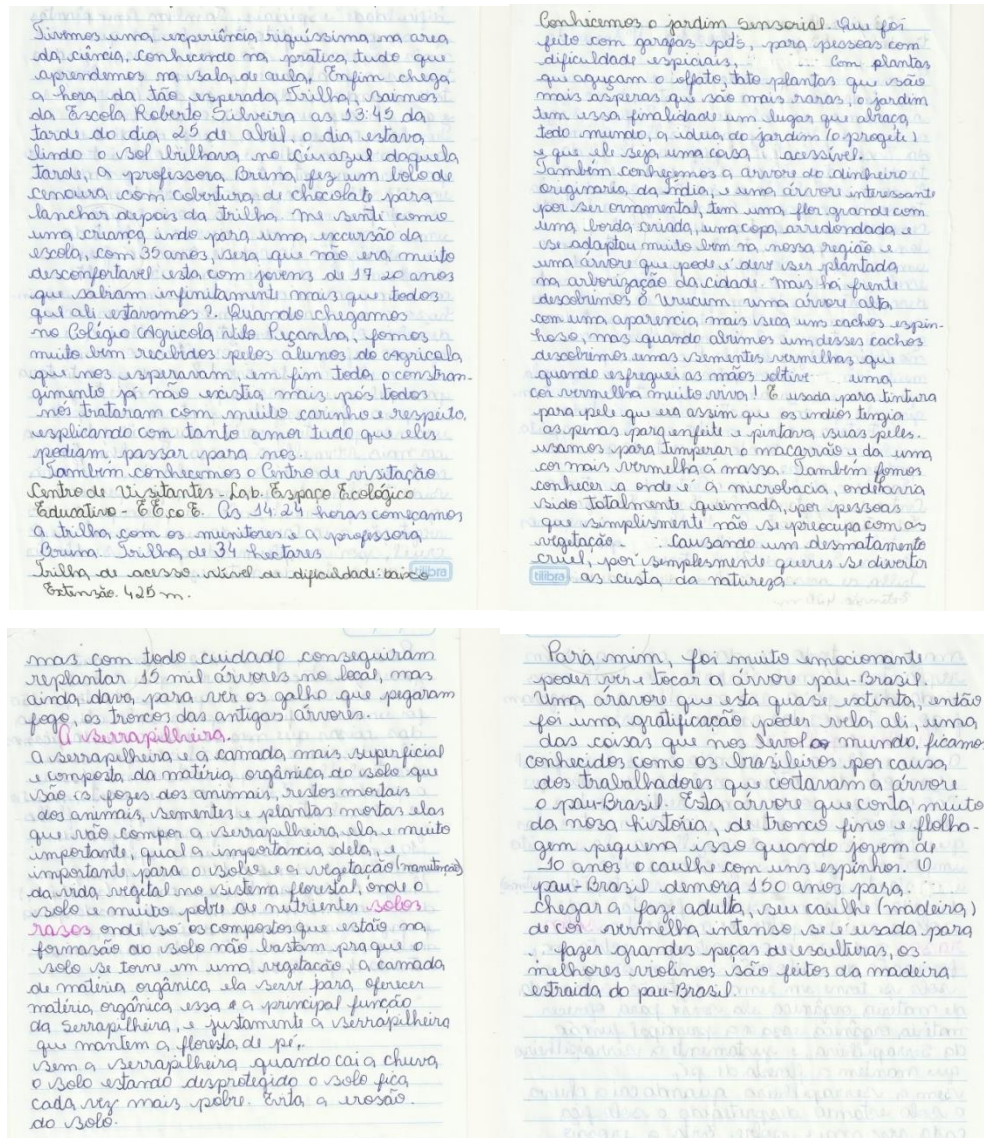 Tivemos uma experiência riquíssima na area
da ciência, conhecendo na prática tudo que
aprendemos na sala de aula. Enfim chega
a hora da tão esperada Trilha, saimos
da Escola Roberto Silveira as 13:45 da
tarde do dia 25 de abril, o dia estava
lindo o sol brilhava no céu azul daquela
tarde, a professora Bruna, fez um bolo de
cenoura com cobertura de chocolate para
lanchar depois da trilha. me senti como
uma criança indo para uma excursão da
escola, com 35 anos, sera que não era muito
desconfortavel esta com jovens de 17 20 anos
que sabiam infinitamente mais que todos
que ali estavamos?. Quando chegamos
no Colégio Agricola Nilo Peçanha, fomos
muito bem recibidos pelos álunos do agricala
que nos esperavam, em fim todo o constran-
gimento já não existia mais pós todos
nós trataram com muito carinho e respeito,
esplicando com tanto amor tudo que eles
podiam passar para nos.
Também conhecemos o Centro de visitação
Centro de Visitantes - Lab. Espaço Ecológico
Educativo - EEcoE. As 14:24 horas começamos
a trilha com os monitores e a professora
Bruna. Trilha de 34 hectares
Trilha de acesso nível de dificuldade: baixo
Extensão. 425 m.
tilibra
Conhecemos o jardim Sensorial. Que foi
feito com garafas pets, para pessoas com
dificuldade espiciais, com plantas
que aguçam o olfato, tato plantas que são
mais asperas que são mais raras, o jardim
tem essa finalidade um lugar que abraça
todo mundo, a ideia do jardim (o progete)
e que ele seja uma coisa acessível.
Também conhecemos a árvore do dinheiro
originaria da Índia, e uma árvore interessante
por ser ornamental, tem uma flor grande com
uma borda criada, uma copa arredondada e
se adaptou muito bem na nossa região e
uma árvore que pode é deve ser plantada
na arborização da cidade. mais há frente
descobrimos o Urucum uma árvore alta
com uma aparencia mais seca uns cachos espin-
hoso, mas quando abrimos um desses cachos
descobrimos umas sementes vermelhas que
quando esfreguei as mãos obtive uma
cor vermelha muito viva! E usada para tintura
para pele que era assim que os indios tingia
as penas para enfeite e pintava suas peles.
usamos para temperar o macarrão e da uma
cor mais vermelha á massa. Também fomos
conhecer a onde é a microbacia, onde havia
sido totalmente queimada, por pessoas
que simplismente não se preocupa com as
vegetação. Causando um desmatamento
cruel, por semplesmente queres se divertir
tilibra as custa da natureza
mas com todo cuidado conseguiram
replantar 15 mil árvores no local, mas
ainda dava, para ver os galho que pegaram
fogo, os troncos das antigas árvores.
A serrapilheira.
a serrapilheira e a camada mais superficial
e composta da matéria, orgânica do solo que
são as fezes dos animais, restos mortais
dos animais, sementes e plantas mortas elas
que vão compor a serrapilheira, ela e muito
importante, qual a importancia dela, e
importante para o solo e a vegetação (manutenção)
da vida, vegital no sistema florestal, onde o
solo e muito pobre de nutrientes solos
rasos onde só os compostos que estão na
formasão do solo não bastam pra que o
solo se torne em uma vegetação, a camada
de matéria orgânica, ela serve para, oferecer
matéria, orgânica, essa e a principal função
da Serrapilheira, e justamente a serrapilheira
que mantem a floresta de pé,
sem a serrapilheira quando cai a chuva
o solo estando desprotegido o solo fica
cada vez mais pobre. Evita a erosão.
do solo.
Pará, mim, foi muito emocionante
poder ver e tocar a árvore pau-Brasil.
Uma áravore que esta quase extinta, então
foi uma gratificação poder vela, ali, uma
das coisas que nos levol ao mundo, ficamos
conhecidos como os brasileiros por causa
dos trabalhadores que cortaram a árvore
o pau-Brasil. Esta árvore que conta muito
da nosa história, de tronco fino e flolha-
gem pequena isso quando jovem de
10 anos o caulhe com uns espinhos. O
pau-Brasil demora 150 anos pará,
chegar a faze adulta, seu caulhe (madeira)
de cor vermelha intenso se é usada para
fazer grandes peças de esculturas, os
melhores violinos são feitos da madeira
estraida do pau-Brasil.